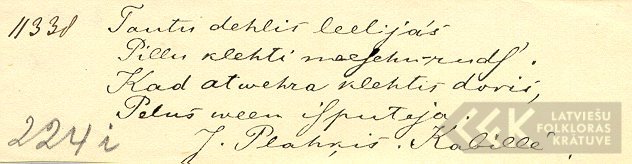 11338 Tautu dehlis leelijás
Pillu klehti meeschu-rudſ'.
Kad atwehra klehtis doris,
Pelus ween iſputeja.
224 i J. Plahķis. Kabillē.
LATVIEŠU
FOLKLORAS
KRĀTUVE